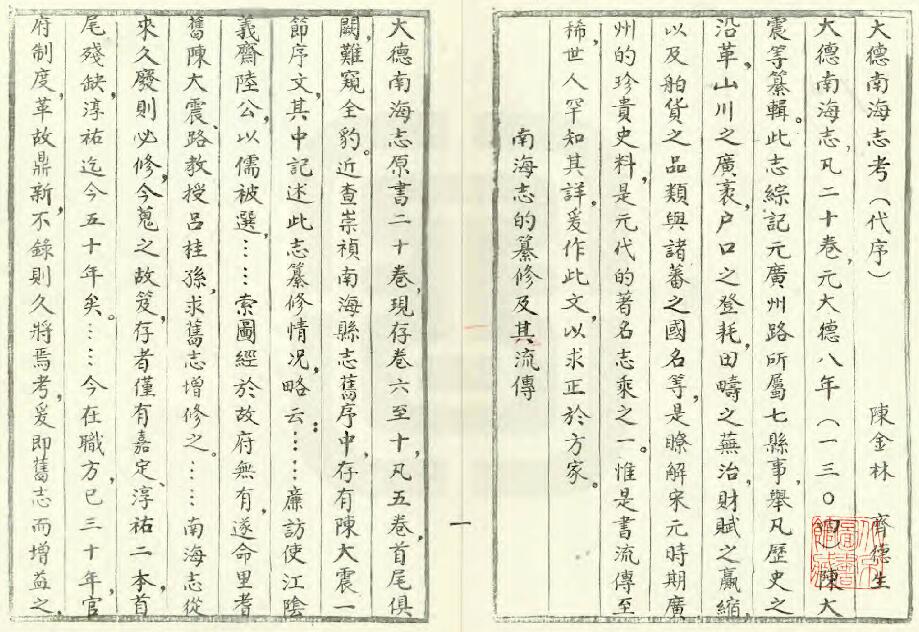 大德南海志考（代序）　陳金林　齊德生
大德南海志，凡二十卷，元大德八年（一三〇四）陳大
震等纂輯。此志綜記元廣州路所屬七縣事，舉凡歷史之
沿革，山川之廣袤，户口之登耗，田疇之蕪治，財賦之贏縮，
以及舶貨之品類與諸蕃之國名等，是瞭解宋元時期廣
州的珍貴史料，是元代的著名志乘之一。惟是書流傳至
稀，世人罕知其詳，爰作此文，以求正於方家。
南海志的纂修及其流傳
大德南海志原書二十卷，現存卷六至十，凡五卷，首尾俱
闕，難窺全豹。近查崇禎南海縣志舊序中，存有陳大震一
節序文，其中記述此志纂修情况，略云：……廉訪使江陰
義齋陸公，以儒被選，……索圖經於故府無有，遂命里耆
舊陳大震、路教授吕桂孫，求舊志增修之。……南海志從
來久廢則必修，今蒐之故笈，存者僅有嘉定、淳祐二本，首
尾殘缺，淳祐迄今五十年矣。……今在職方，已三十年，官
府制度，革故鼎新，不錄則久將焉考，爰即舊志而增益之，
一